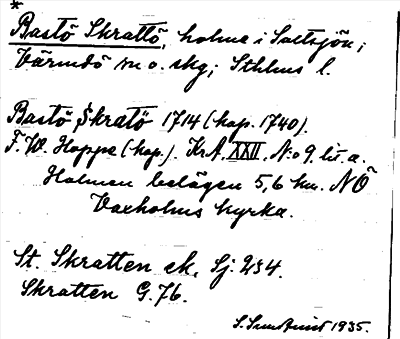 *
Bastö Skrattö, holme i Saltsjön;
Värmdö sn o. skg; Sthlms l.
Bastö Skratö 1714 (kop. 1740).
F. W. Hoppe (kop.). Kr.A. XXII. N:o 9. lit. a.
Holmen belägen 5,6 km. NÖ
Vaxholms kyrka.
St. Skratten ek. Sj. 234.
Skratten G. 76.
S. Sundqvist 1935.